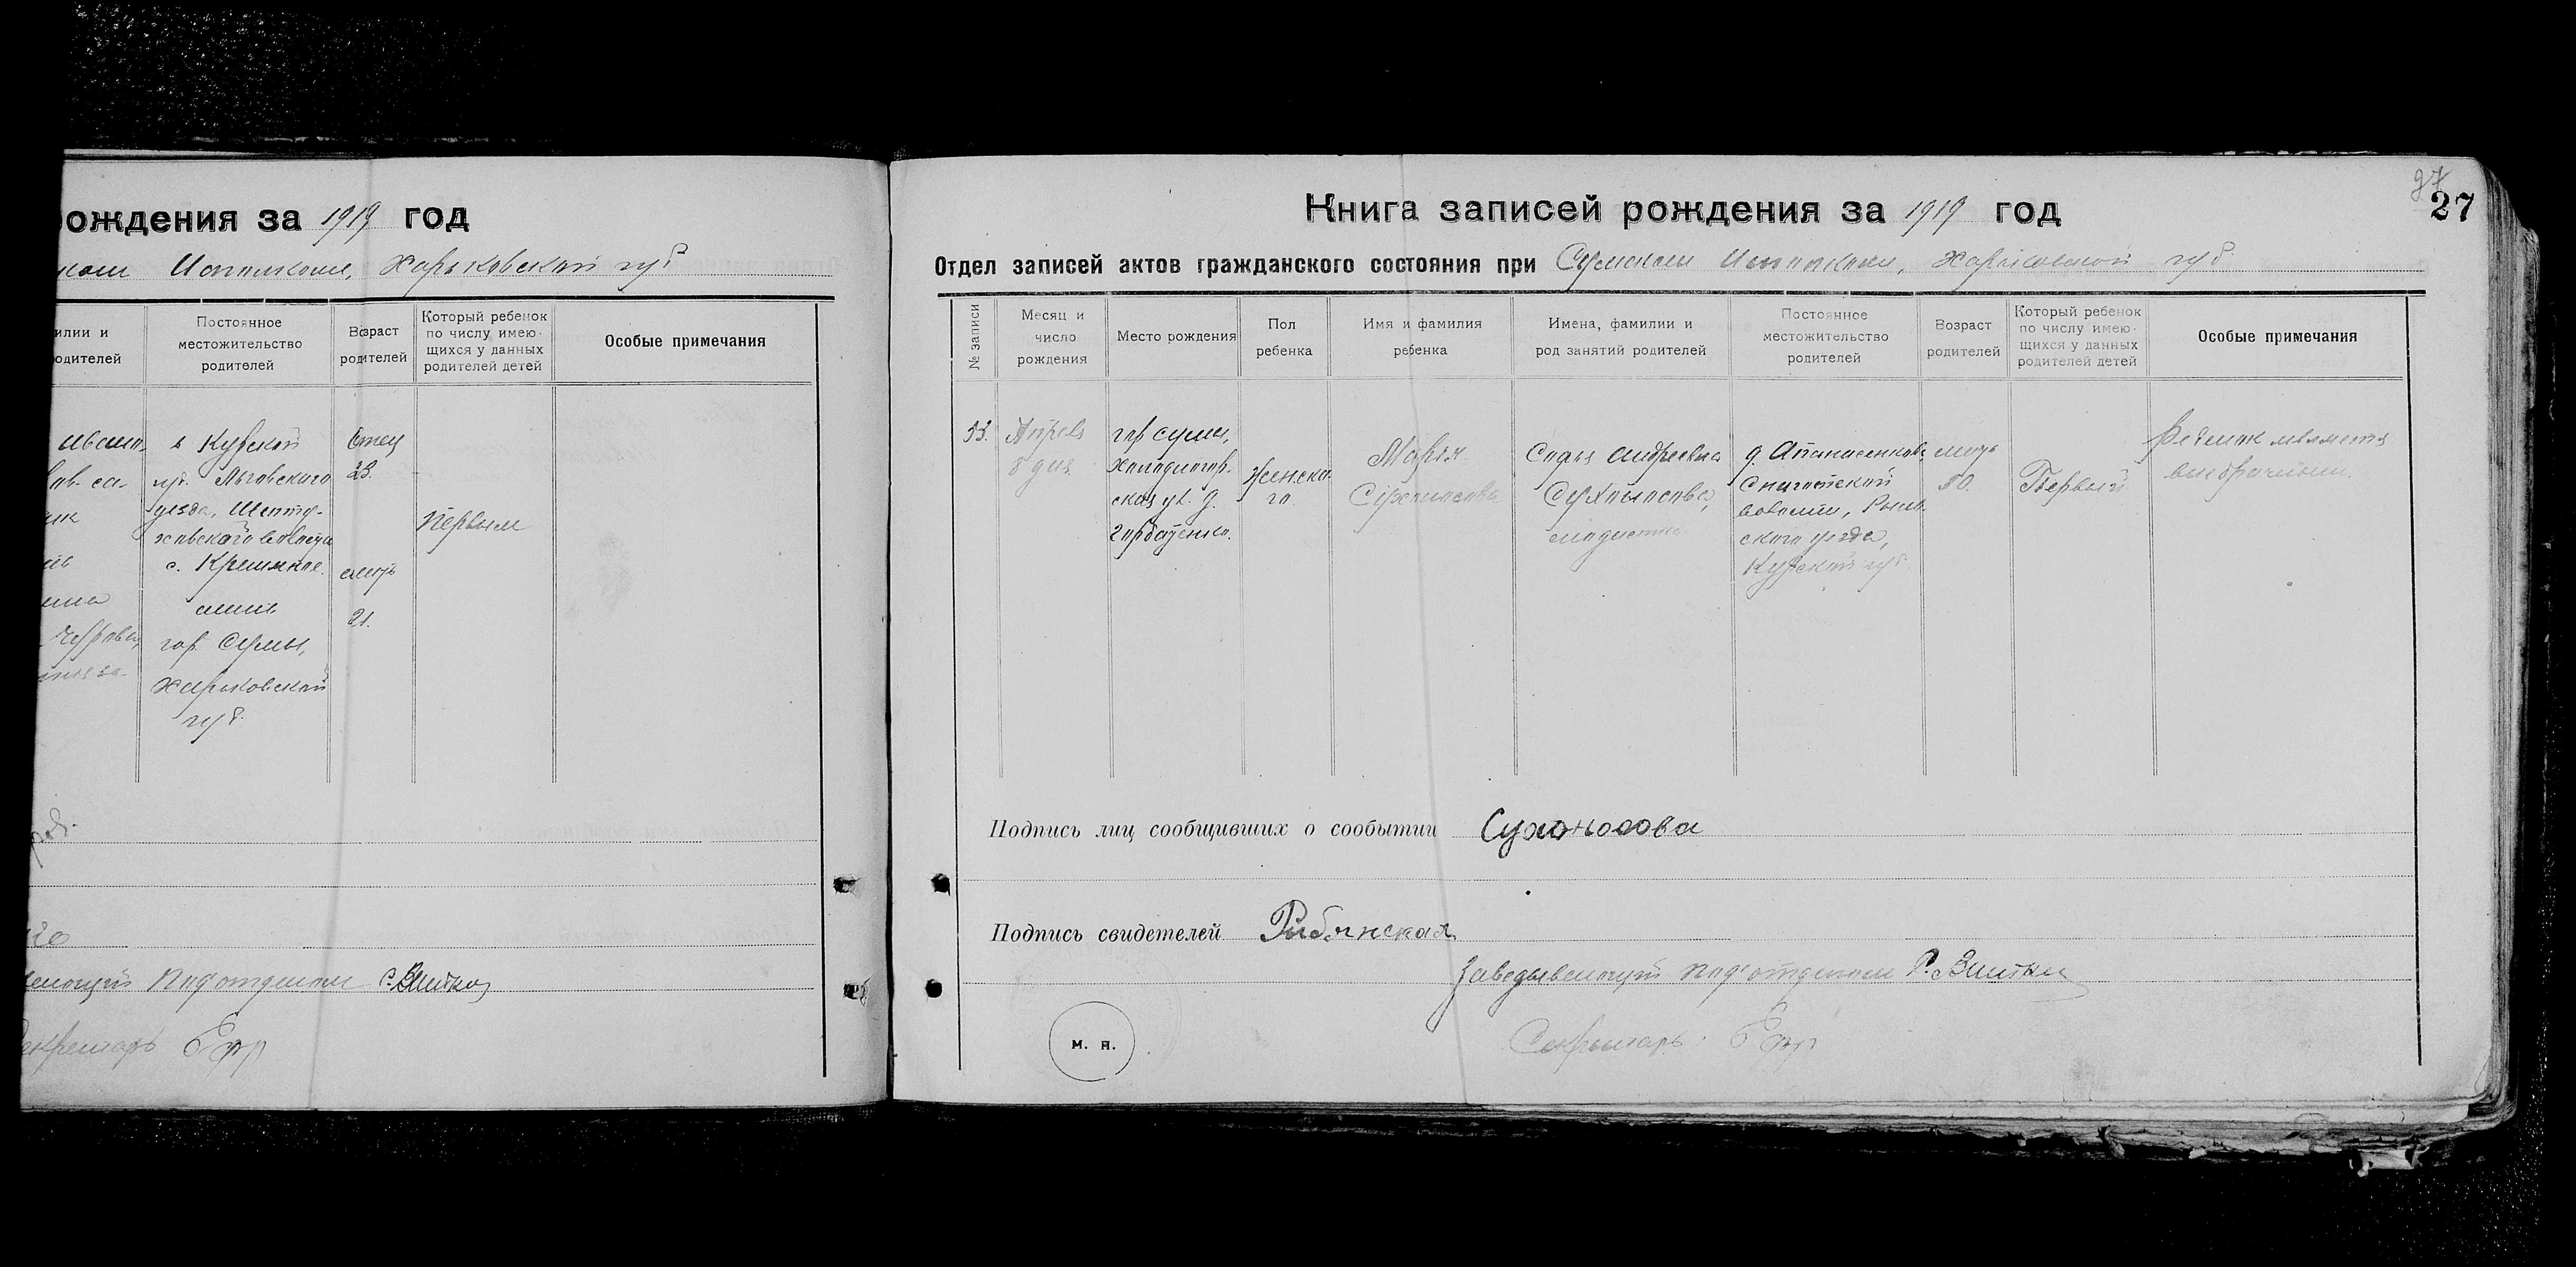 рождения за 1919 год
Исполкоме, Харьковской губ
Постоянное
местожительство
родителей
Возраст
родителей
Который ребенок
по числу имею-
щихся у данных
родителей детей
Особые примечания
в Курской
губ. Льговского
уезда,
с.
гор. Сумы,
Харьковской
губ.
Отец
23.
мать
21.
Первым
под'отделом
Секретарь
27
27
Книга записей рождения за 1919 год
Отдел записей актов гражданского состояния при Сумском Исполкоме, Харьковской губ.
№ записи
Месяц и
число
рождения
Место рождения
Пол
ребенка
Имя и фамилия
ребенка
Имена, фамилии и
род занятий родителей
Постоянное
местожительство
родителей
Возраст
родителей
Который ребенок
по числу имею-
щихся у данных
родителей детей
Особые примечания
33.
Апрель
8 дня
гор Сумы,
Холодногор-
ская ул. д.
Горбатенко.
Женска-
го
Мария
Сухоносова
Софья Андреевна
Сухоносова,
модистка
д. Апанасенкова
Снигостской
волости, Рыль-
ского уезда,
Курской губ.
мать
Первый
Ребенок является
внебрачным.
Подпись лиц сообщивших о сообытии Сухоносова
Подпись свидетелей
Заведывающий под'отделом
Секретарь:
м. п.